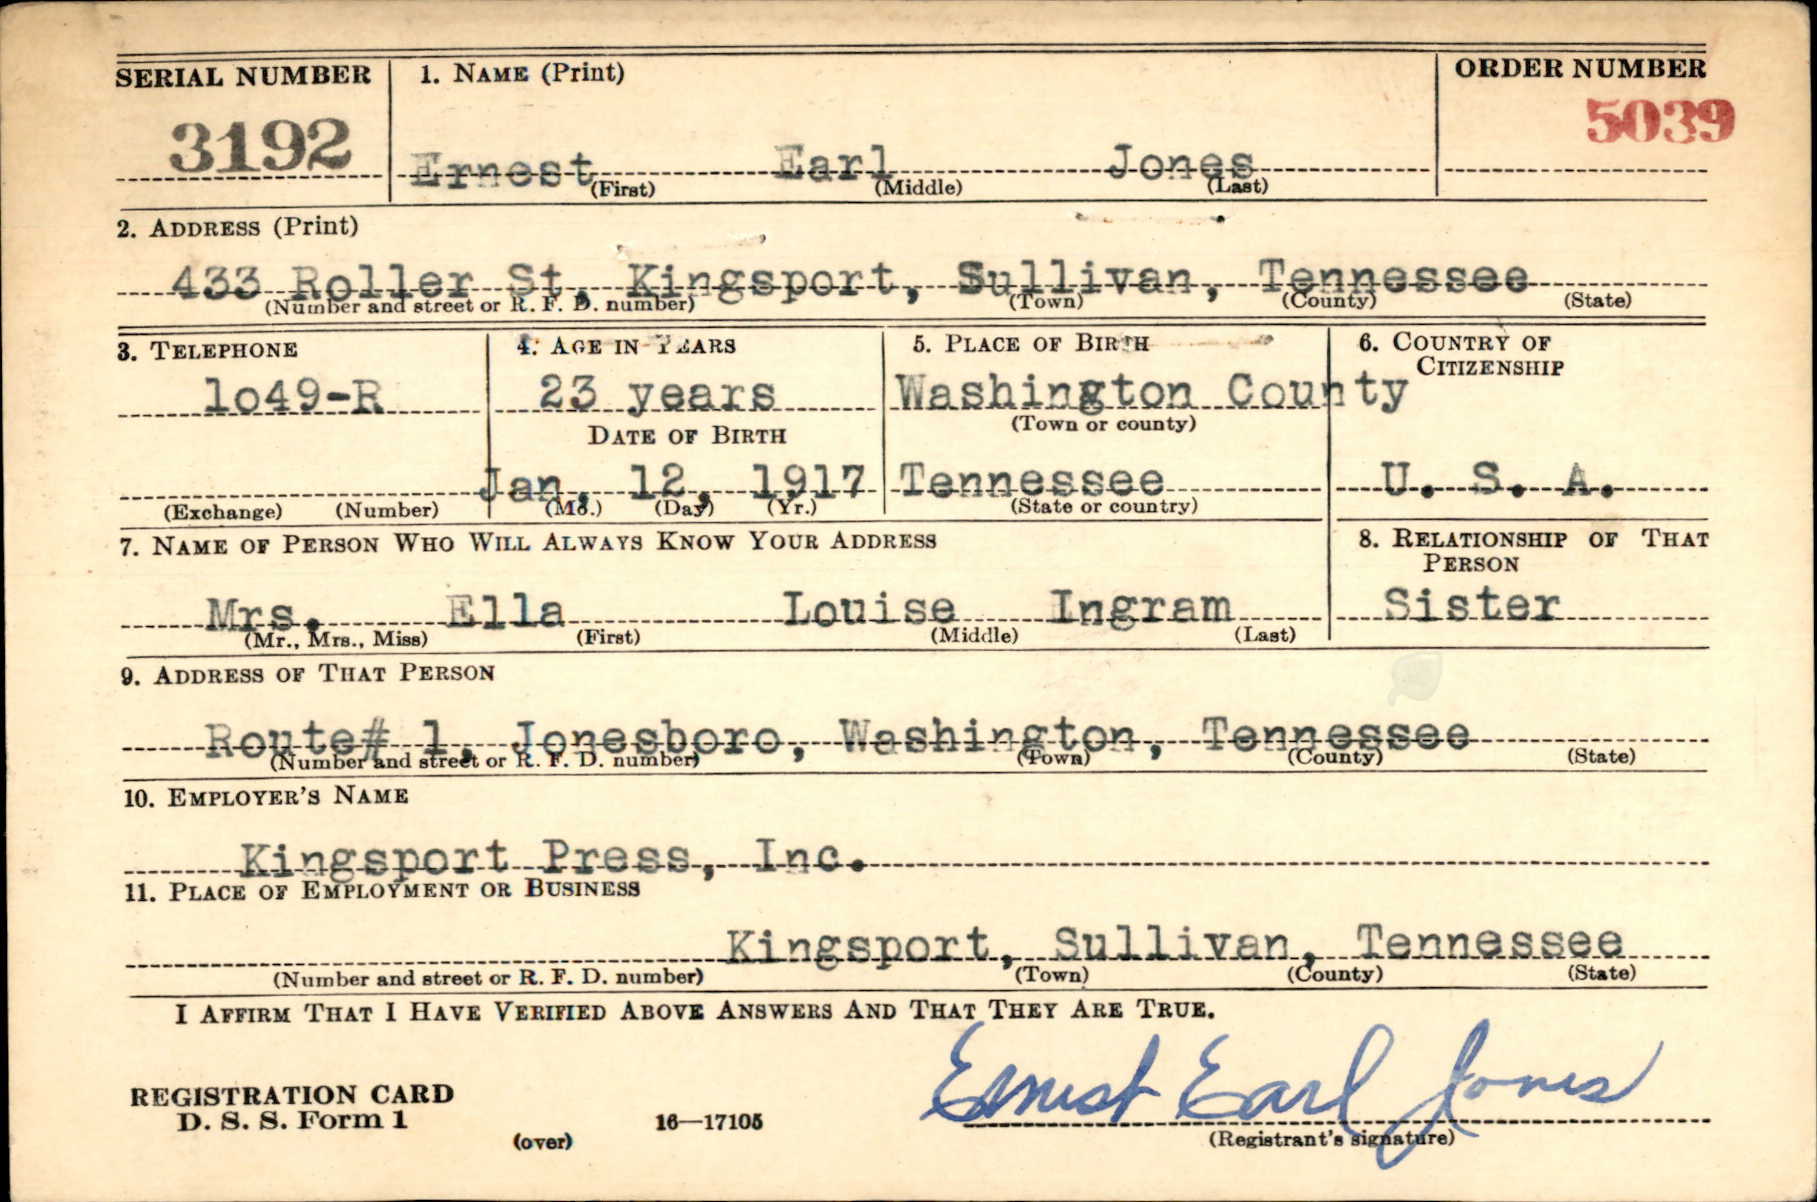 SERIAL NUMBER 1. NAME (Print) ORDER NUMBER
3192 Ernest Earl Jones 5039
(First) (Middle) (Last)
2. ADDRESS (Print)
433 Roller St, Kingsport, Sullivan, Tennessee
(Number and street or R. F. D. number) (Town) (County) (State)
3. TELEPHONE 4. AGE IN YEARS 5. PLACE OF BIRTH 6. COUNTRY OF
CITIZENSHIP
1o49-R 23 years Washington County
DATE OF BIRTH (Town or county)
Jan. 12, 1917 Tennessee U. S. A.
(Exchange) (Number) (Mo.) (Day) (Yr.) (State or country)
7. NAME OF PERSON WHO WILL ALWAYS KNOW YOUR ADDRESS 8. RELATIONSHIP OF THAT
PERSON
Mrs. Ella Louise Ingram Sister
(Mr., Mrs., Miss) (First) (Middle) (Last)
9. ADDRESS OF THAT PERSON
Route# 1, Jonesboro, Washington, Tennessee
(Number and street or R. F. D. number) (Town) (County) (State)
10. EMPLOYER'S NAME
Kingsport Press, Inc.
11. PLACE OF EMPLOYMENT OR BUSINESS
Kingsport, Sullivan, Tennessee
(Number and street or R. F. D. number) (Town) (County) (State)
I AFFIRM THAT I HAVE VERIFIED ABOVE ANSWERS AND THAT THEY ARE TRUE.
Ernest Earl Jones
REGISTRATION CARD
D. S. S. Form 1 16—17105
(over) (Registrant's signature)